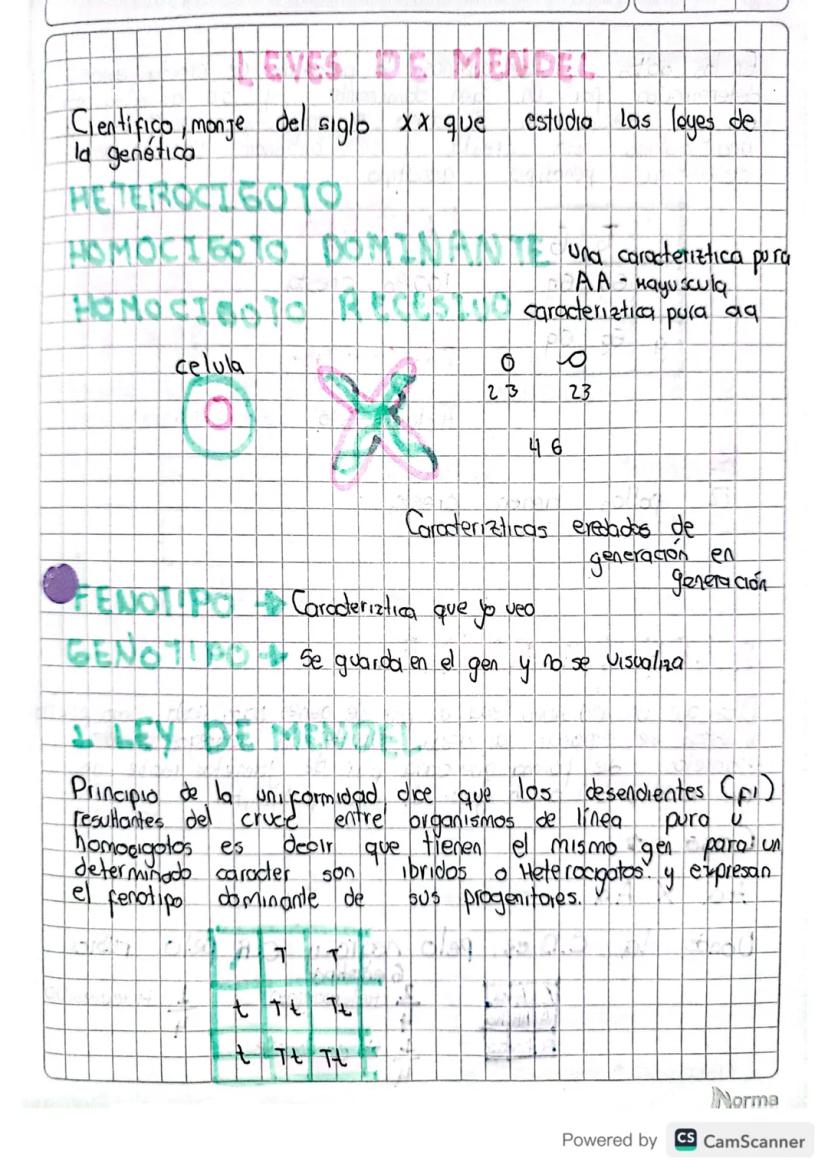 LEYES DE MENDEL
Cientifico, monje del siglo xx que estudio las leyes de
la genético
HETEROCIGOTO
HOMOCIGOTO DOMINANTE una caracteriztica pura
AA - Mayuscula
HOMOCIGOTO RECESIVO caracteriztica pura aa
celula
23 23
46
Caracterizticas eredados de
generación en
generación
FENOTIPO → Caracteriztica que yo veo
GENOTIPO → Se guarda en el gen y no se visualiza
1 LEY DE MENDEL
Principio de la uniformidad dice que los desendientes (F1)
resultantes del cruce entre organismos de línea pura u
homocigotos es decir que tienen el mismo gen para un
determinado caracter son ibridos o Heterocigotos y expresan
el fenotipo dominante de sus progenitores.
T T
t Tt Tt
t Tt Tt
Norma
Powered by CS CamScanner